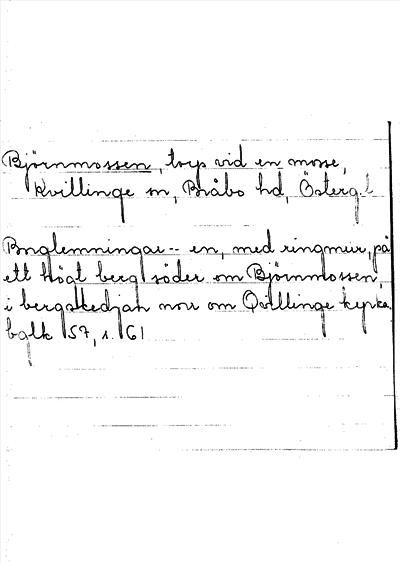 Björnmossen, torp vid en mosse,
Kvillinge sn, Bråbo hd, Östergl
Borglemningar -- en, med ringmur, på
ett högt berg söder om Björnmossen,
i bergskedjan norr om Qvillinge kyrka.
57, s. 61